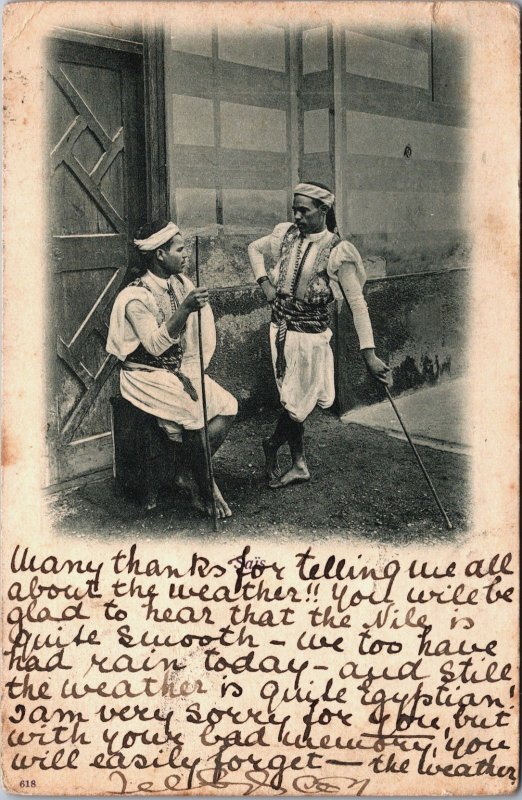 Saïs
Many thanks for telling me all
about the weather!! You will be
glad to hear that the Nile is
quite smooth – we too have
had rain today – and still
the weather is quite Egyptian!
I am very sorry for you but
with your bad memory, you
will easily forget – the weather
618